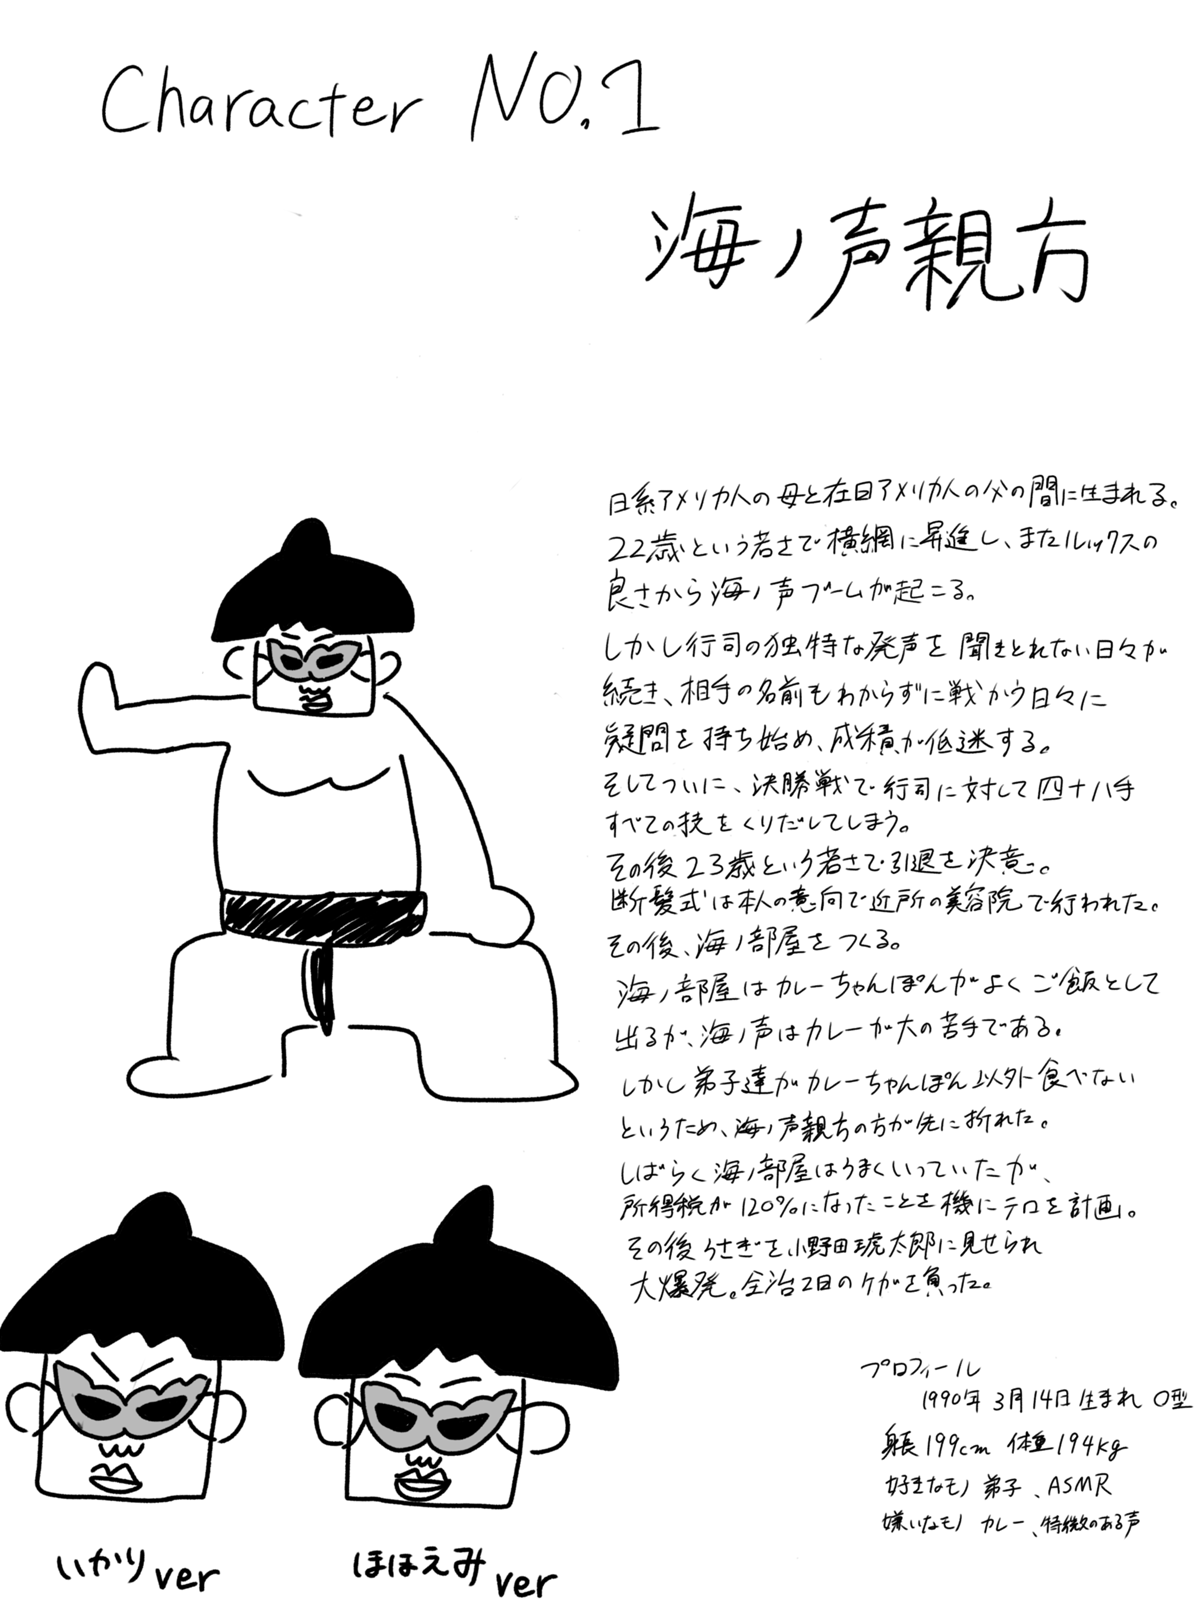 Character NO.1
海ノ声親方
日系アメリカ人の母と在日アメリカ人の父の間に生まれる。
22歳という若さで横綱に昇進し、またルックスの
良さから海ノ声ブームが起こる。
しかし行司の独特な発声を聞きとれない日々が
続き、相手の名前もわからずに戦かう日々に
疑問を持ち始め、成積が低迷する。
そしてついに、決勝戦で行司に対して四十八手
すべての技をくりだしてしまう。
その後23歳という若さで引退を決意。
断髪式は本人の意向で近所の美容院で行われた。
その後、海ノ部屋をつくる。
海ノ部屋はカレーちゃんぽんがよくご飯として
出るが、海ノ声はカレーが大の苦手である。
しかし弟子達がカレーちゃんぽん以外食べない
というため、海ノ声親方の方が先に折れた。
しばらく海ノ部屋はうまくいっていたが、
所得税が120%になったことを機にテロを計画。
その後うさぎを小野田琥太郎に見せられ
大爆発。全治2日のケガを負った。
プロフィール
1990年3月14日生まれ O型
身長199cm 体重194kg
好きなモノ 弟子、ASMR
嫌いなモノ カレー、特徴のある声
いかりver
ほほえみver